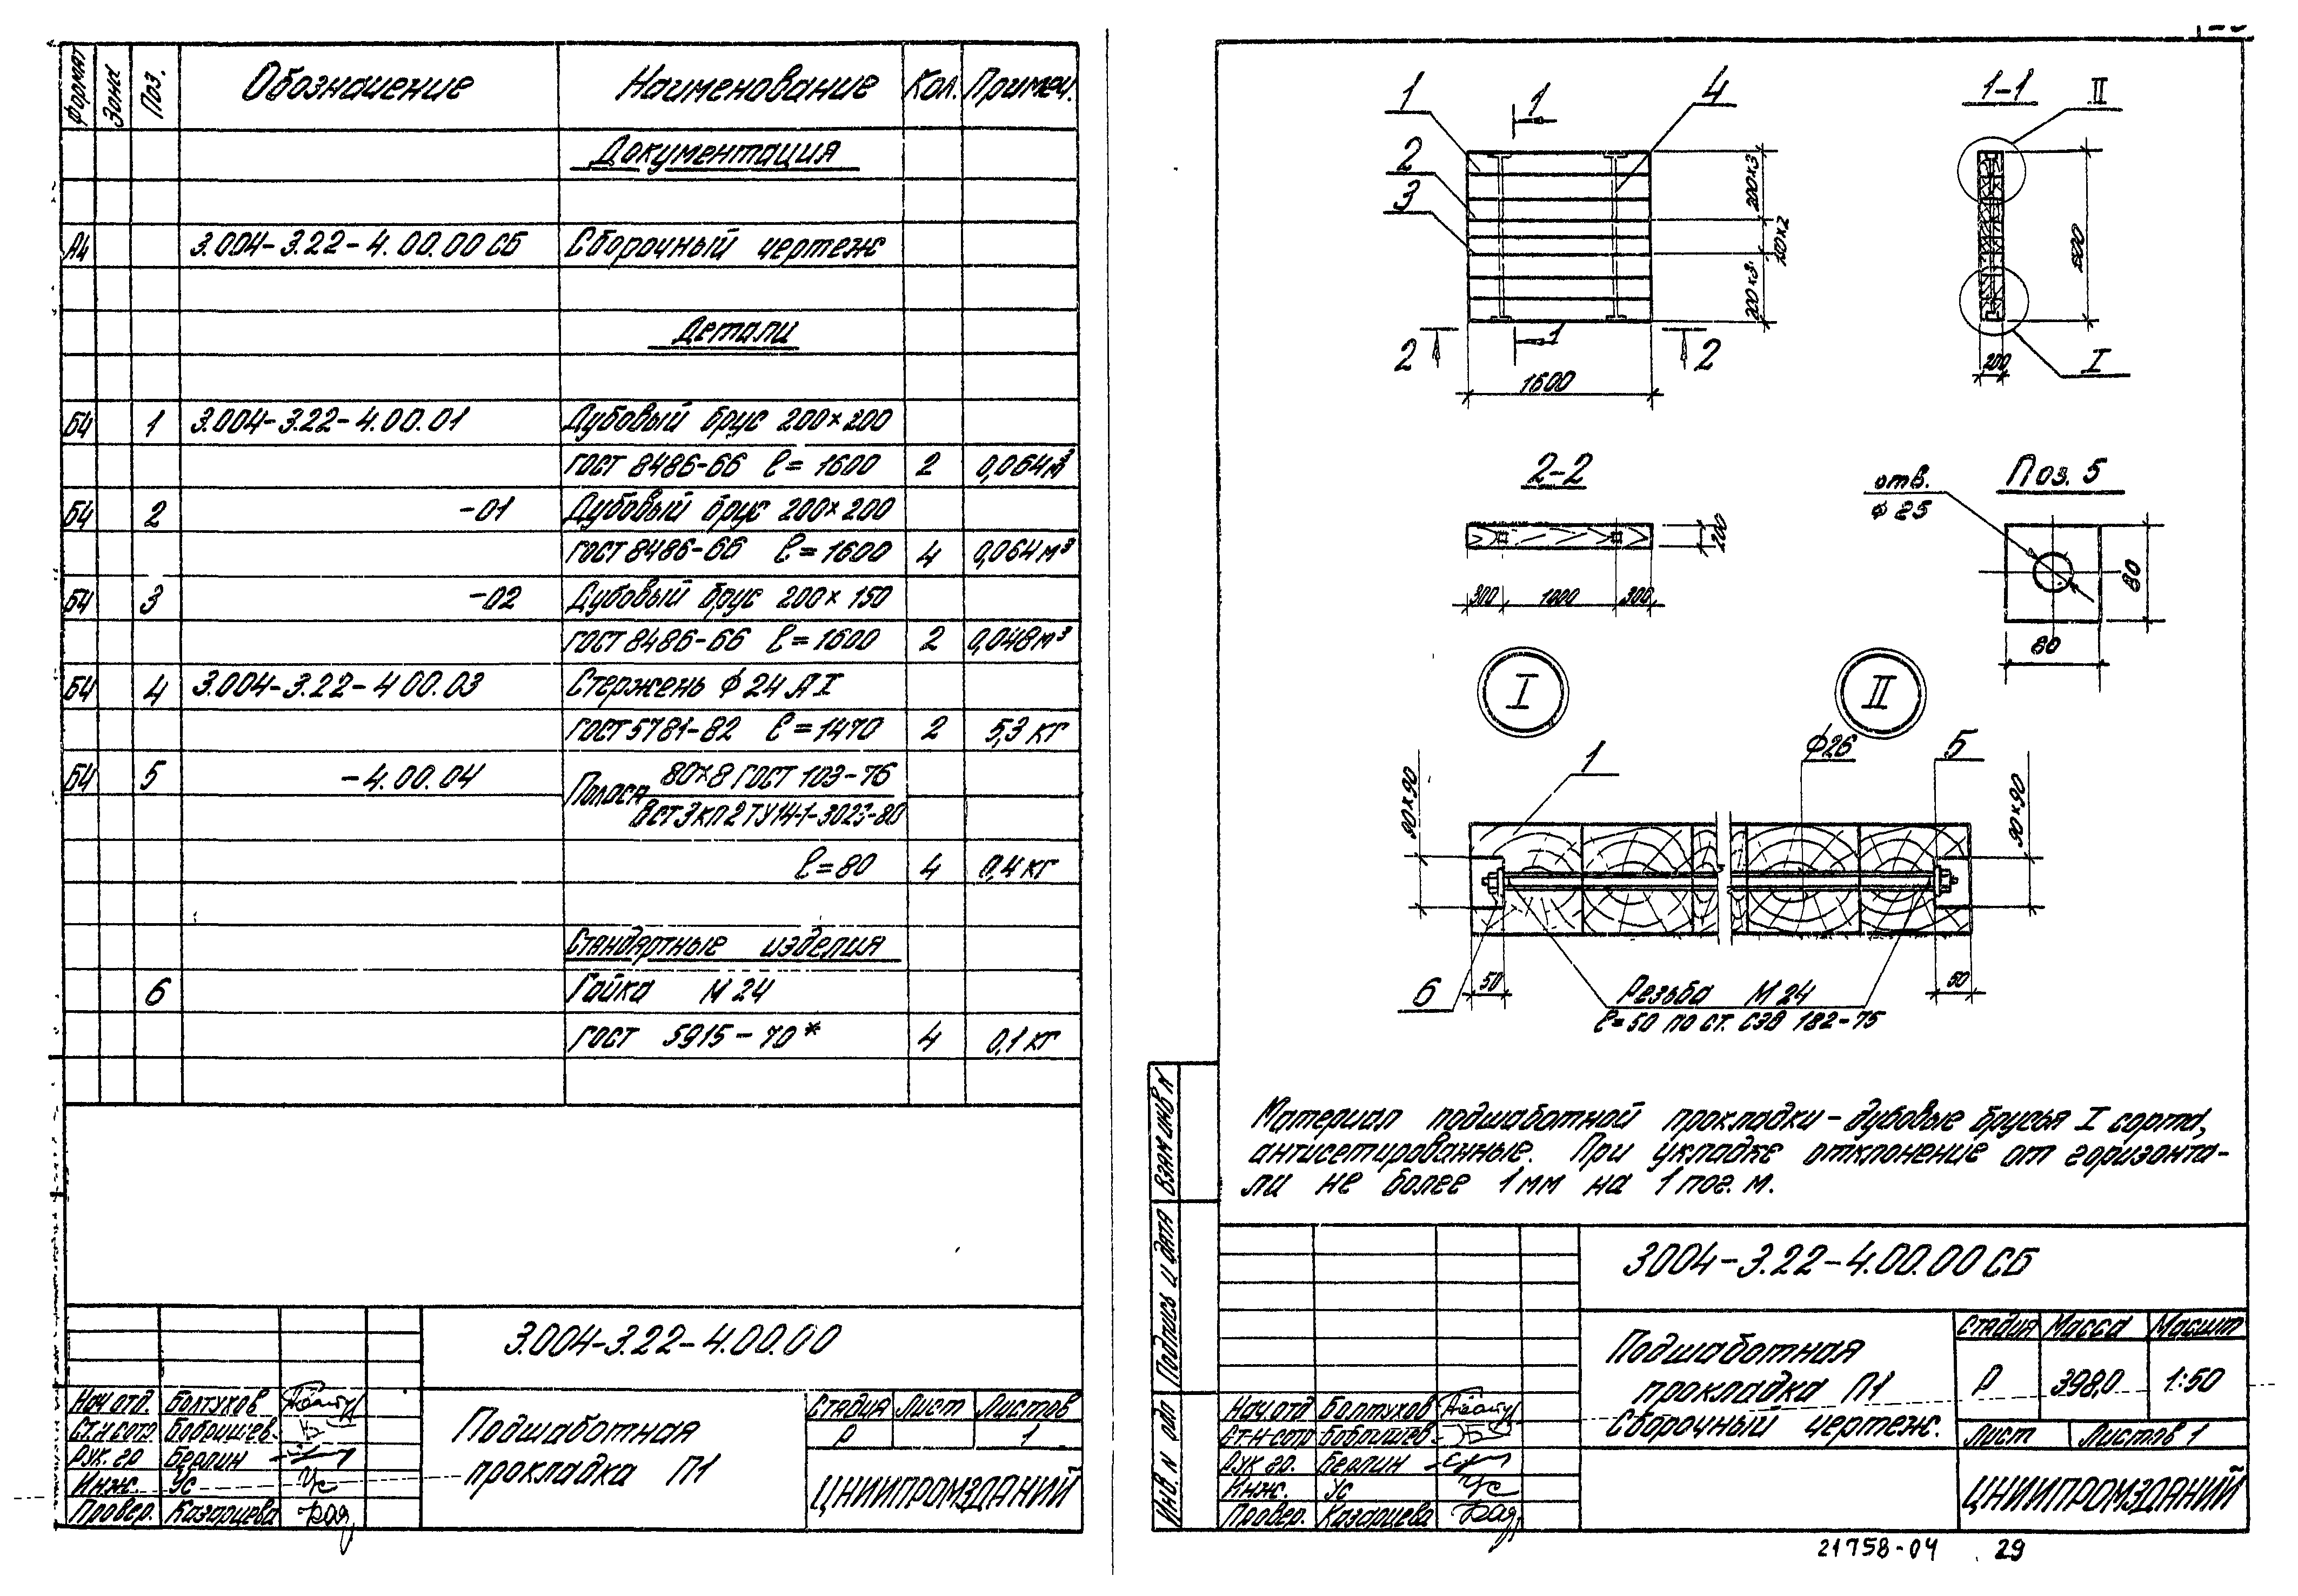 Формат Зона Поз. Обозначение Наименование Кол. Примеч.
Документация
А4 3.004-3.22-4.00.00 СБ Сборочный чертеж
Детали
Б4 1 3.004-3.22-4.00.01 Дубовый брус 200×200
ГОСТ 8486-66 ℓ=1600 2 0,064м³
Б4 2 -01 Дубовый брус 200×200
ГОСТ 8486-66 ℓ=1600 4 0,064м³
Б4 3 -02 Дубовый брус 200×150
ГОСТ 8486-66 ℓ=1600 2 0,048м³
Б4 4 3.004-3.22-4 00.03 Стержень ϕ24 АI
ГОСТ 5781-82 ℓ=1470 2 5,3 кг
Б4 5 -4.00.04 Полоса 80×8 ГОСТ 103-76
ВСт3кп2 ТУ14-1-3023-80
ℓ=80 4 0,4 кг
Стандартные изделия
6 Гайка М24
ГОСТ 5915-70* 4 0,1 кг
3.004-3.22-4.00.00
Нач отд. Болтухов
Ст.н сотр Бобришев
Рук. гр Берлин
Инж. Ус
Провер. Казарцева
Подшаботная
прокладка П1
Стадия Лист Листов
Р 1
ЦНИИПРОМЗДАНИЙ
1 1 4 1-1 II
2
3
200×3
200×3
1600
2 1 2
200 I
1600
2-2 Поз. 5
отв.
ϕ 25
200
300 1000 300
80
80
I II
1 ϕ26 5
90×90 90×90
6 50 Резьба М24 50
ℓ=50 по ст. СЭВ 182-75
Материал подшаботной прокладки - дубовые брусья I сорта,
антисетированные. При укладке отклонение от горизонта-
ли не более 1мм на 1 пог. м.
Взам инв N
Подпись и дата
Инв. N одл
3004-3.22-4.00.00 СБ
Нач.отд Болтухов
Ст.н сотр Бобришев
Рук гр. Берлин
Инж. Ус
Провер. Казарцева
Подшаботная
прокладка П1
Сборочный чертеж.
Стадия Масса Масшт
Р 398,0 1:50
Лист Листов 1
ЦНИИПРОМЗДАНИЙ
21758-04 29